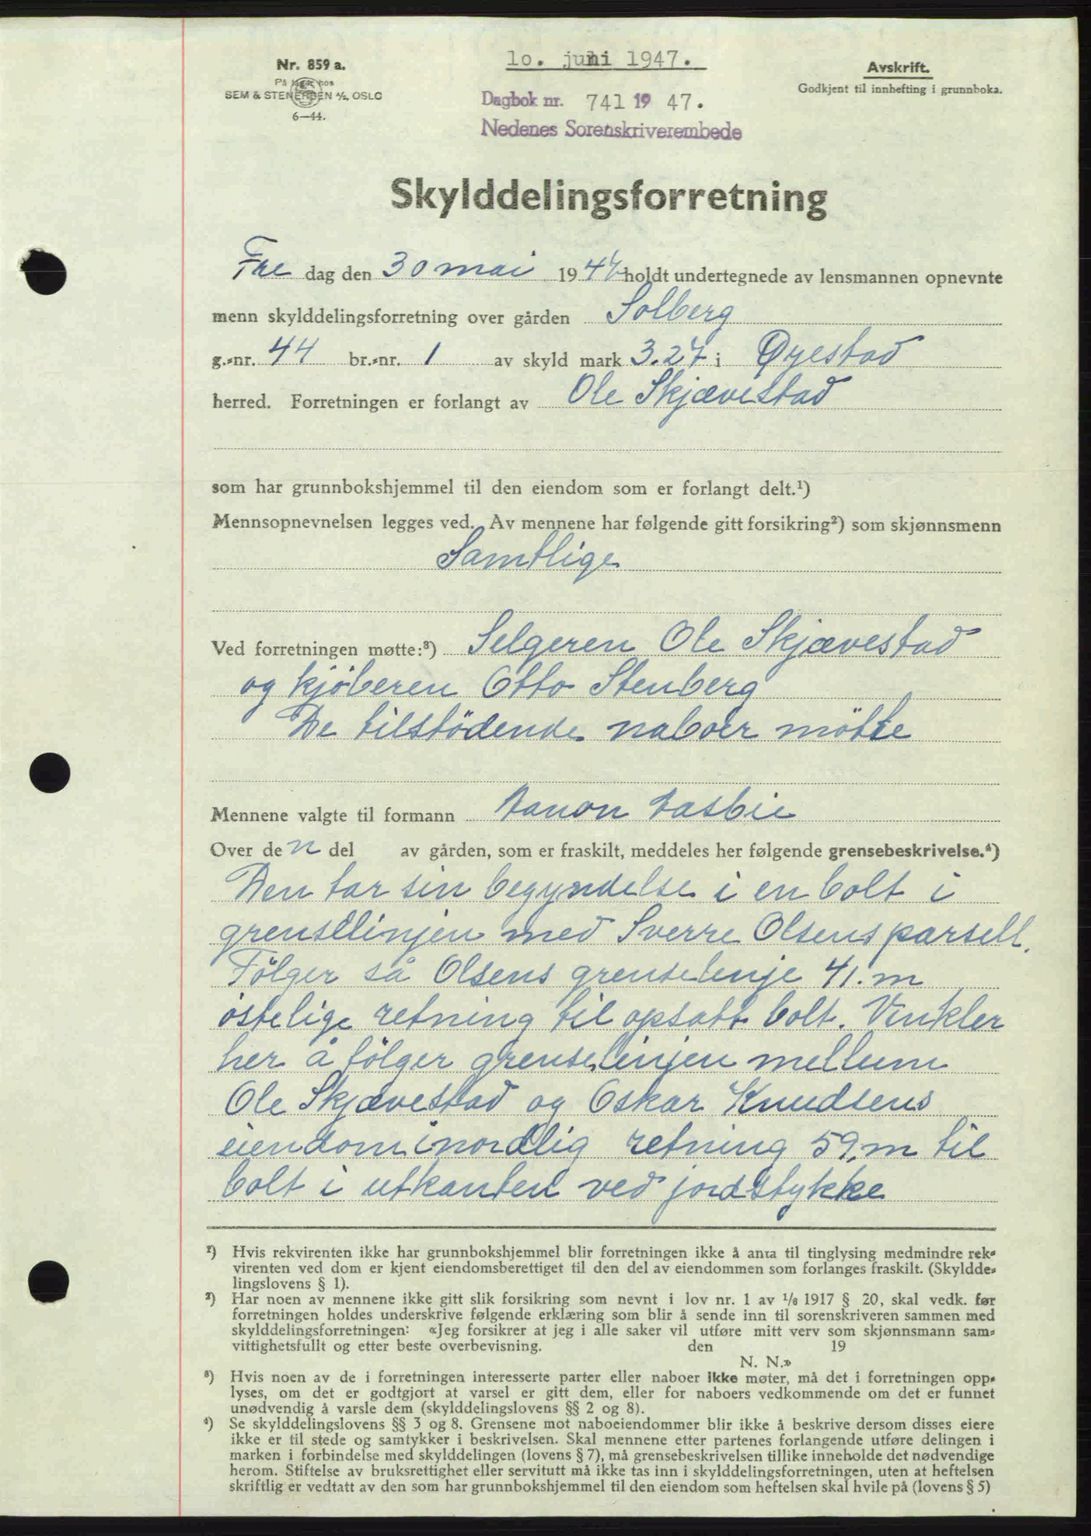 Nr. 859 a.
På lager hos
SEM & STENERSEN A/S, OSLO
6—44.
10. juni 1947.
Dagbok nr. 741 19 47.
Nedenes Sorenskriverembede
Avskrift.
Godkjent til innhefting i grunnboka.
Skylddelingsforretning
Fre dag den 30 mai 1947 holdt undertegnede av lensmannen opnevnte
menn skylddelingsforretning over gården Solberg
g.-nr. 44 br.-nr. 1 av skyld mark 3.27 i Øyestad
herred. Forretningen er forlangt av Ole Skjævestad
som har grunnbokshjemmel til den eiendom som er forlangt delt.¹)
Mennsopnevnelsen legges ved. Av mennene har følgende gitt forsikring²) som skjønnsmenn
Samtlige
Ved forretningen møtte:³) Selgeren Ole Skjævestad
og kjøberen Otto Stenberg
De tilstødende naboer møtte
Mennene valgte til formann
Over den del av gården, som er fraskilt, meddeles her følgende grensebeskrivelse.⁴)
Den tar sin begyndelse i en bolt i
grenselinjen med Sverre Olsens parsell.
Følger så Olsens grenselinje 41. m
østelige retning til opsatt bolt. Vinkler
her å følger grenselinjen mellem
Ole Skjævestad og Oskar Knudsens
eiendom i nordlig retning 59. m til
bolt i utkanten ved jordstykke
¹) Hvis rekvirenten ikke har grunnbokshjemmel blir forretningen ikke å anta til tinglysing medmindre rek-
virenten ved dom er kjent eiendomsberettiget til den del av eiendommen som forlanges fraskilt. (Skyldde-
lingslovens § 1).
²) Har noen av mennene ikke gitt slik forsikring som nevnt i lov nr. 1 av 1/6 1917 § 20, skal vedk. før
forretningen holdes underskrive følgende erklæring som blir å sende inn til sorenskriveren sammen med
skylddelingsforretningen: «Jeg forsikrer at jeg i alle saker vil utføre mitt verv som skjønnsmann sam-
vittighetsfullt og etter beste overbevisning. den 19
N. N.»
³) Hvis noen av de i forretningen interesserte parter eller naboer ikke møter, må det i forretningen opp-
lyses, om det er godtgjort at varsel er gitt dem, eller for naboers vedkommende om det er funnet
unødvendig å varsle dem (skylddelingslovens §§ 2 og 8).
⁴) Se skylddelingslovens §§ 3 og 8. Grensene mot naboeiendommer blir ikke å beskrive dersom disses eiere
ikke er til stede og samtykker i beskrivelsen. Skal mennene etter partenes forlangende utføre delingen i
marken i forbindelse med skylddelingen (lovens § 7), må grensebeskrivelsen tillike inneholde det nødvendige
herom. Stiftelse av bruksrettighet eller servitutt må ikke tas inn i skylddelingsforretningen, uten at heftelsen
skriftlig er vedtatt av den som har grunnbokshjemmel til den eiendom som heftelsen skal hvile på (lovens § 5)